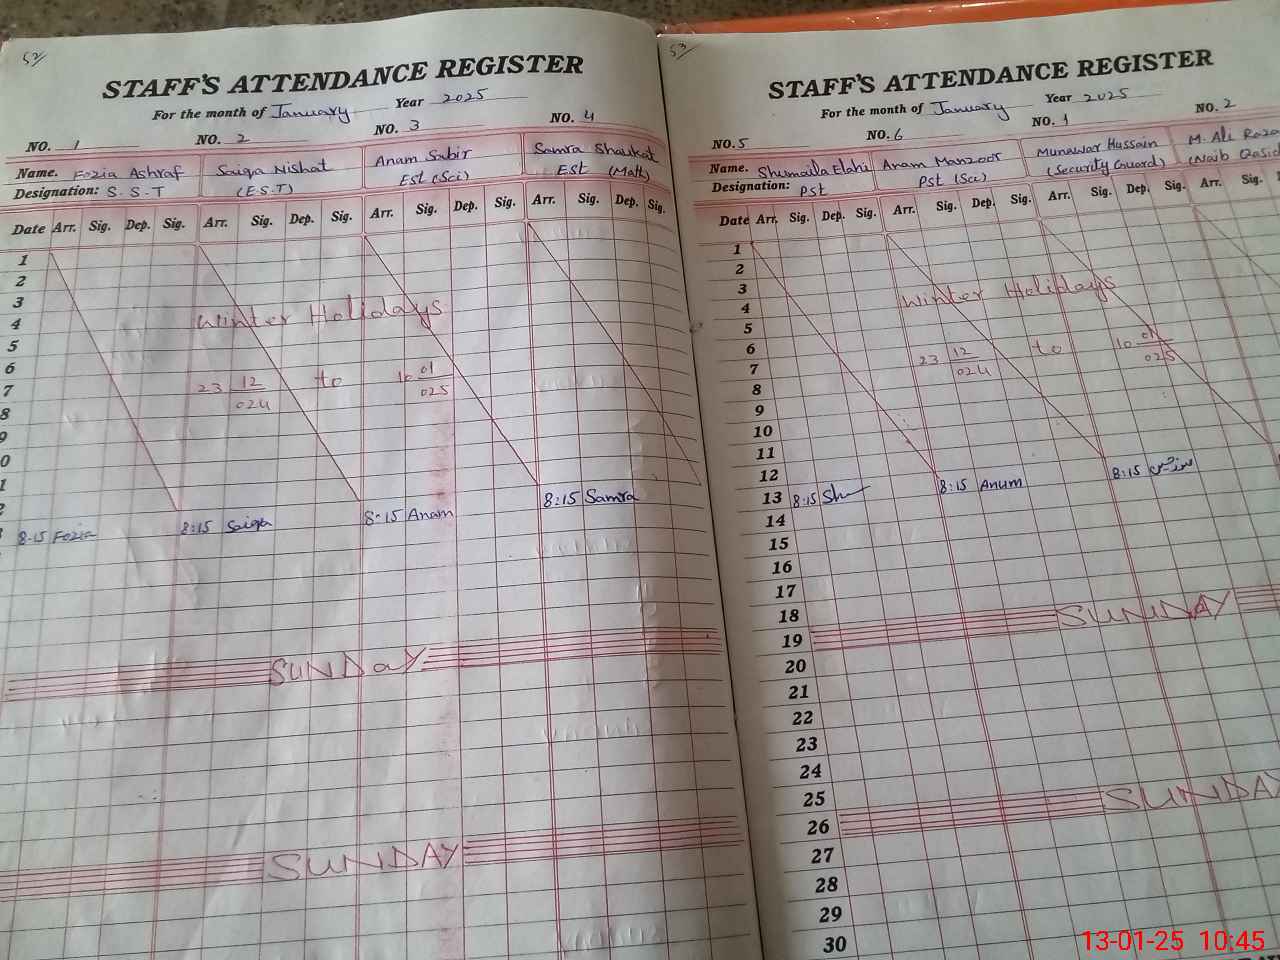 52/
STAFF'S ATTENDANCE REGISTER
For the month of January Year 2025
NO. 1 NO. 2 NO. 3 NO. 4
Name. Fozia Ashraf Saiqa Nishat Anam Sabir Samra Shaukat
Designation: S.S.T (E.S.T) Est (Sci) Est (Math)
Date Arr. Sig. Dep. Sig. Arr. Sig. Dep. Sig. Arr. Sig. Dep. Sig. Arr. Sig. Dep. Sig.
1
2
3
4 Winter Holidays
5
6
7 23 12/024 to 10 01/025
8
9
0
1
2
8-15 Fozia 8:15 Saiqa 8-15 Anam 8:15 Samra
SUNDaY
SUNDAY
53/
STAFF'S ATTENDANCE REGISTER
For the month of January Year 2025
NO. 5 NO. 6 NO. 1 NO. 2
Name. Shumaila Elahi Anam Manzoor Munawar Hussain M. Ali Raza
Designation: Pst Pst (Sci) (Security Guard) (Naib Qasid
Date Arr. Sig. Dep. Sig. Arr. Sig. Dep. Sig. Arr. Sig. Dep. Sig. Arr. Sig.
1
2
3 Winter Holidays
4
5
6 23 12/024 to 10 01/025
7
8
9
10
11
12
13 8:15 8:15 Anum 8:15
14
15
16
17
18
19 SUNDAY
20
21
22
23
24
25
26 SUNDAY
27
28
29
30
13-01-25 10:45